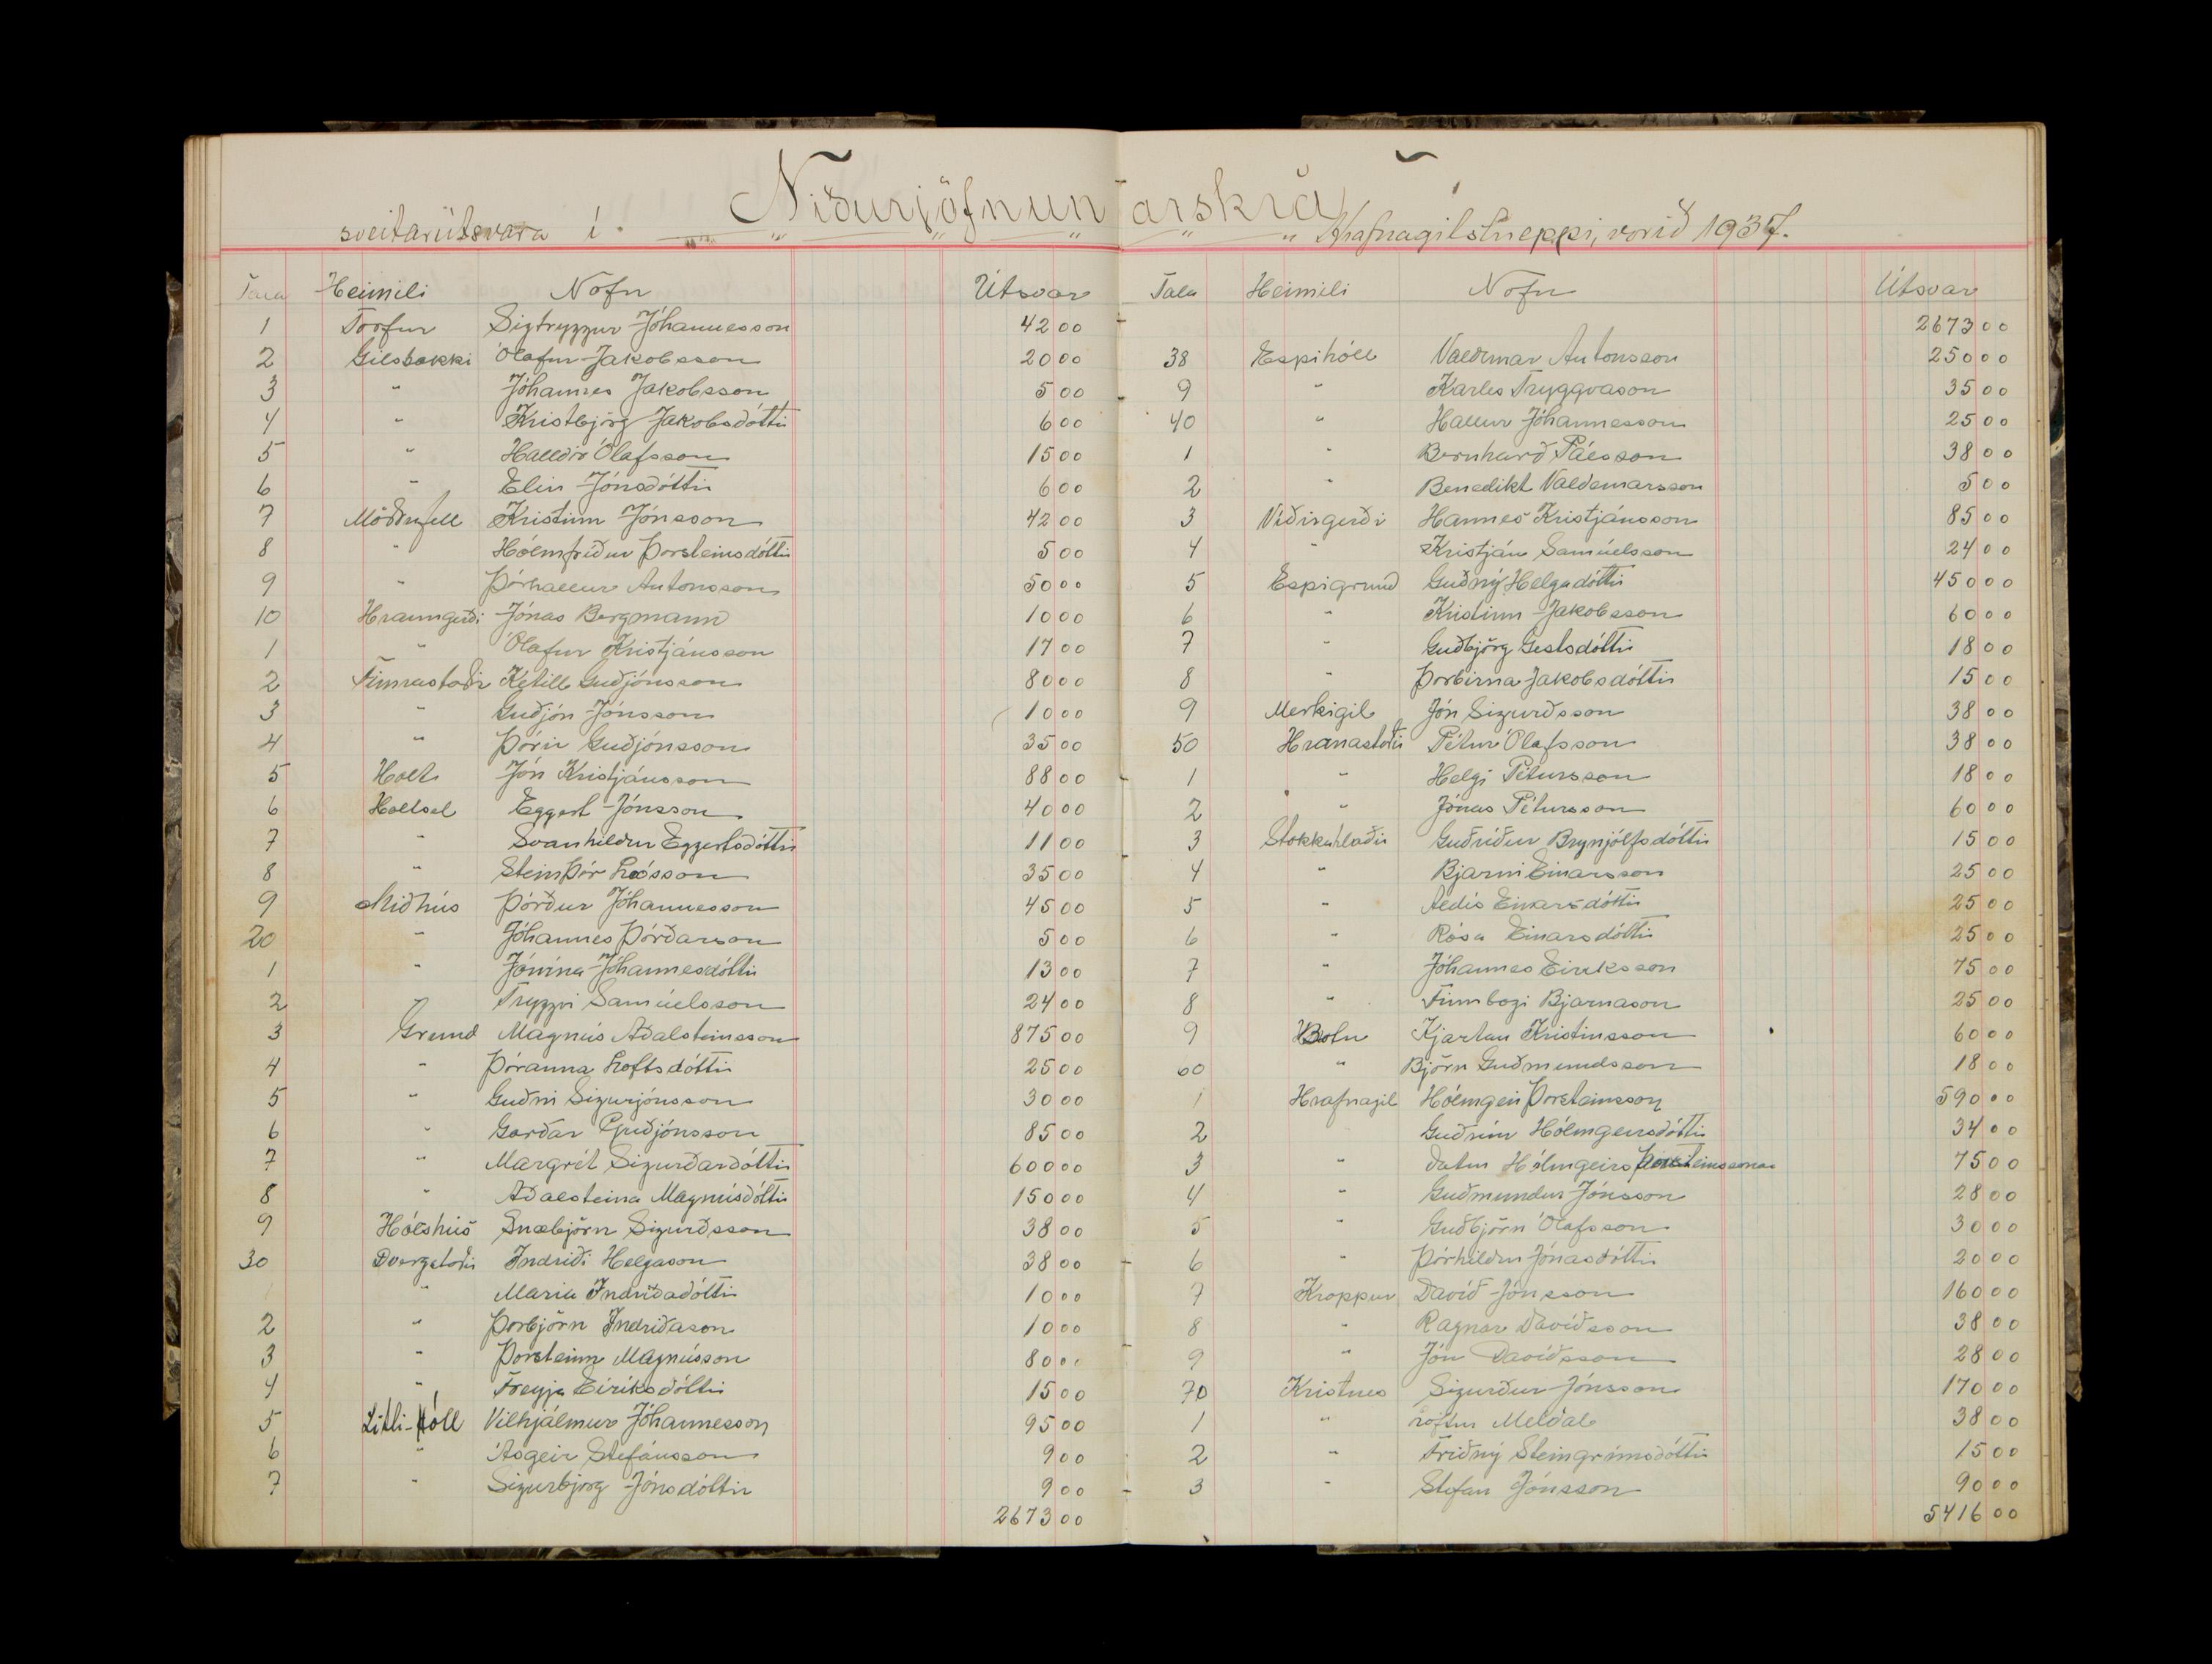 Niðurjöfnunarskrá
sveitarútsvara í " " " " " Hrafnagilshreppi, vorið 1937.
Tala Heimili Nöfn Útsvar
1 Torfur Sigtryggur Jóhannesson 42 00
2 Gilsbakki Ólafur Jakobsson 20 00
3 " Jóhannes Jakobsson 5 00
4 " Kristbjörg Jakobsdóttir 6 00
5 " Halldór Ólafsson 15 00
6 " Elin Jónsdóttir 6 00
7 Möðrufell Kristinn Jónsson 42 00
8 " Hólmfríður Þorsteinsdóttir 5 00
9 " Þórhallur Antonsson 50 00
10 Hraungerði Jónas Bergmann 10 00
1 " Ólafur Kristjánsson 17 00
2 Finnastaðir Ketill Guðjónsson 80 00
3 " Guðjón Jónsson 10 00
4 " Þórir Guðjónsson 35 00
5 Holt Jón Kristjánsson 88 00
6 Holtsel Eggert Jónsson 40 00
7 " Svanhildur Eggertsdóttir 11 00
8 " Steinþór Leósson 35 00
9 Miðhús Þórður Jóhannesson 45 00
20 " Jóhannes Þórðarson 5 00
1 " Jónína Jóhannesdóttir 13 00
2 Tryggvi Samúelsson 24 00
3 Grund Magnús Aðalsteinsson 875 00
4 " Þóranna Loftsdóttir 25 00
5 " Guðni Sigurjónsson 30 00
6 " Garðar Guðjónsson 85 00
7 " Margrét Sigurðardóttir 600 00
8 " Aðalsteina Magnúsdóttir 150 00
9 Hólshús Snæbjörn Sigurðsson 38 00
30 Dvergstaðir Indriði Helgason 38 00
1 " Maria Indriðadóttir 10 00
2 " Þorbjörn Indriðason 10 00
3 " Þorsteinn Magnússon 80 00
4 " Freyja Eiriksdóttir 15 00
5 Litli-Hóll Vilhjálmur Jóhannesson 95 00
6 " Ásgeir Stefánsson 9 00
7 " Sigurbjörg Jónsdóttir 9 00
2673 00
Tala Heimili Nöfn Útsvar
2673 00
38 Espihóll Valdimar Antonsson 250 00
9 " Karles Tryggvason 35 00
40 " Hallur Jóhannesson 25 00
1 " Bernharð Pálsson 38 00
2 " Benedikt Valdemarsson 5 00
3 Víðirgerði Hannes Kristjánsson 85 00
4 " Kristján Samúelsson 24 00
5 Espigrund Guðný Helgadóttir 450 00
6 " Kristinn Jakobsson 60 00
7 " Guðbjörg Gestsdóttir 18 00
8 " Þorbirna Jakobsdóttir 15 00
9 Merkigil Jón Sigurðsson 38 00
50 Hranastaðir Pétur Ólafsson 38 00
1 " Helgi Pétursson 18 00
2 " Jónas Pétursson 60 00
3 Stokkahlaðir Guðríður Brynjólfsdóttir 15 00
4 " Bjarni Einarsson 25 00
5 " Aldís Einarsdóttir 25 00
6 " Rósa Einarsdóttir 25 00
7 " Jóhannes Eiriksson 75 00
8 " Finnbogi Bjarnason 25 00
9 Botn Kjartan Kristinsson 60 00
60 " Björn Guðmundsson 18 00
1 Hrafnagil Hólmgeir Þorsteinsson 590 00
2 Guðrún Hólmgeirsdóttir 34 00
3 " Hólmgeirs Þorsteinssonar 75 00
4 " Guðmundur Jónsson 28 00
5 " Guðbjörn Ólafsson 30 00
6 " Þórhildur Jónasdóttir 20 00
7 Kroppur Davíð Jónsson 160 00
8 " Ragnar Davíðsson 38 00
9 " Jón Davíðsson 28 00
70 Kristnes Sigurður Jónsson 170 00
1 " Loftur Meldal 38 00
2 " Friðný Steingrímsdóttir 15 00
3 " Stefan Jónsson 90 00
5416 00